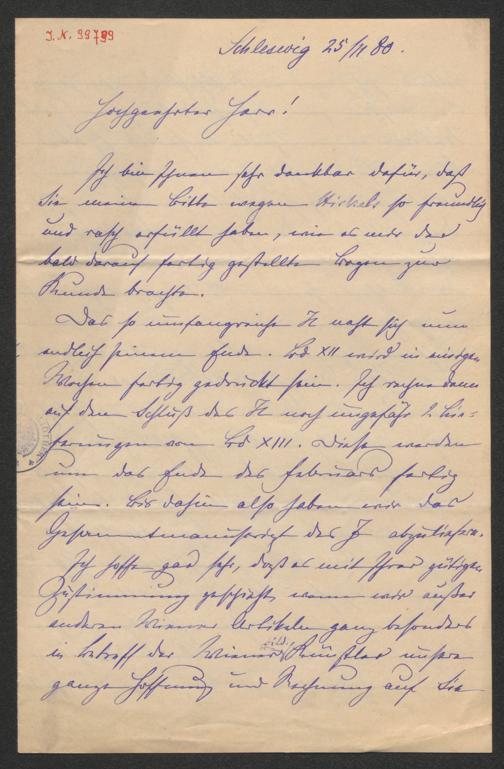 J.N. 99799
Schleswig 25/11 80.
Hochgeehrter Herr!
Ich bin Ihnen sehr dankbar dafür, daß
Sie meine Bitte wegen Hickels so freundlich
und rasch erfüllt haben, wie es mir der
bald darauf fertig gestellte Bogen zur
Kunde brachte.
Das so umfangreiche H naht sich nun
endlich seinem Ende. Bd XII wird in einigen
Wochen fertig gedruckt sein. Ich rechne dann
auf den Schluß des H noch ungefähr 2 Lie-
ferungen von Bd XIII. Diese werden
um das Ende des Februars fertig
sein. Bis dahin also haben wir das
Gesammtmanuscript des J abzuliefern.
Ich hoffe gar sehr, daß es mit Ihrer gütigen
Zustimmung geschieht, wenn wir außer
anderen Wiener Artikeln ganz besonders
in betreff der Wiener bild. Künstler unsere
ganze Hoffnung und Rechnung auf Sie